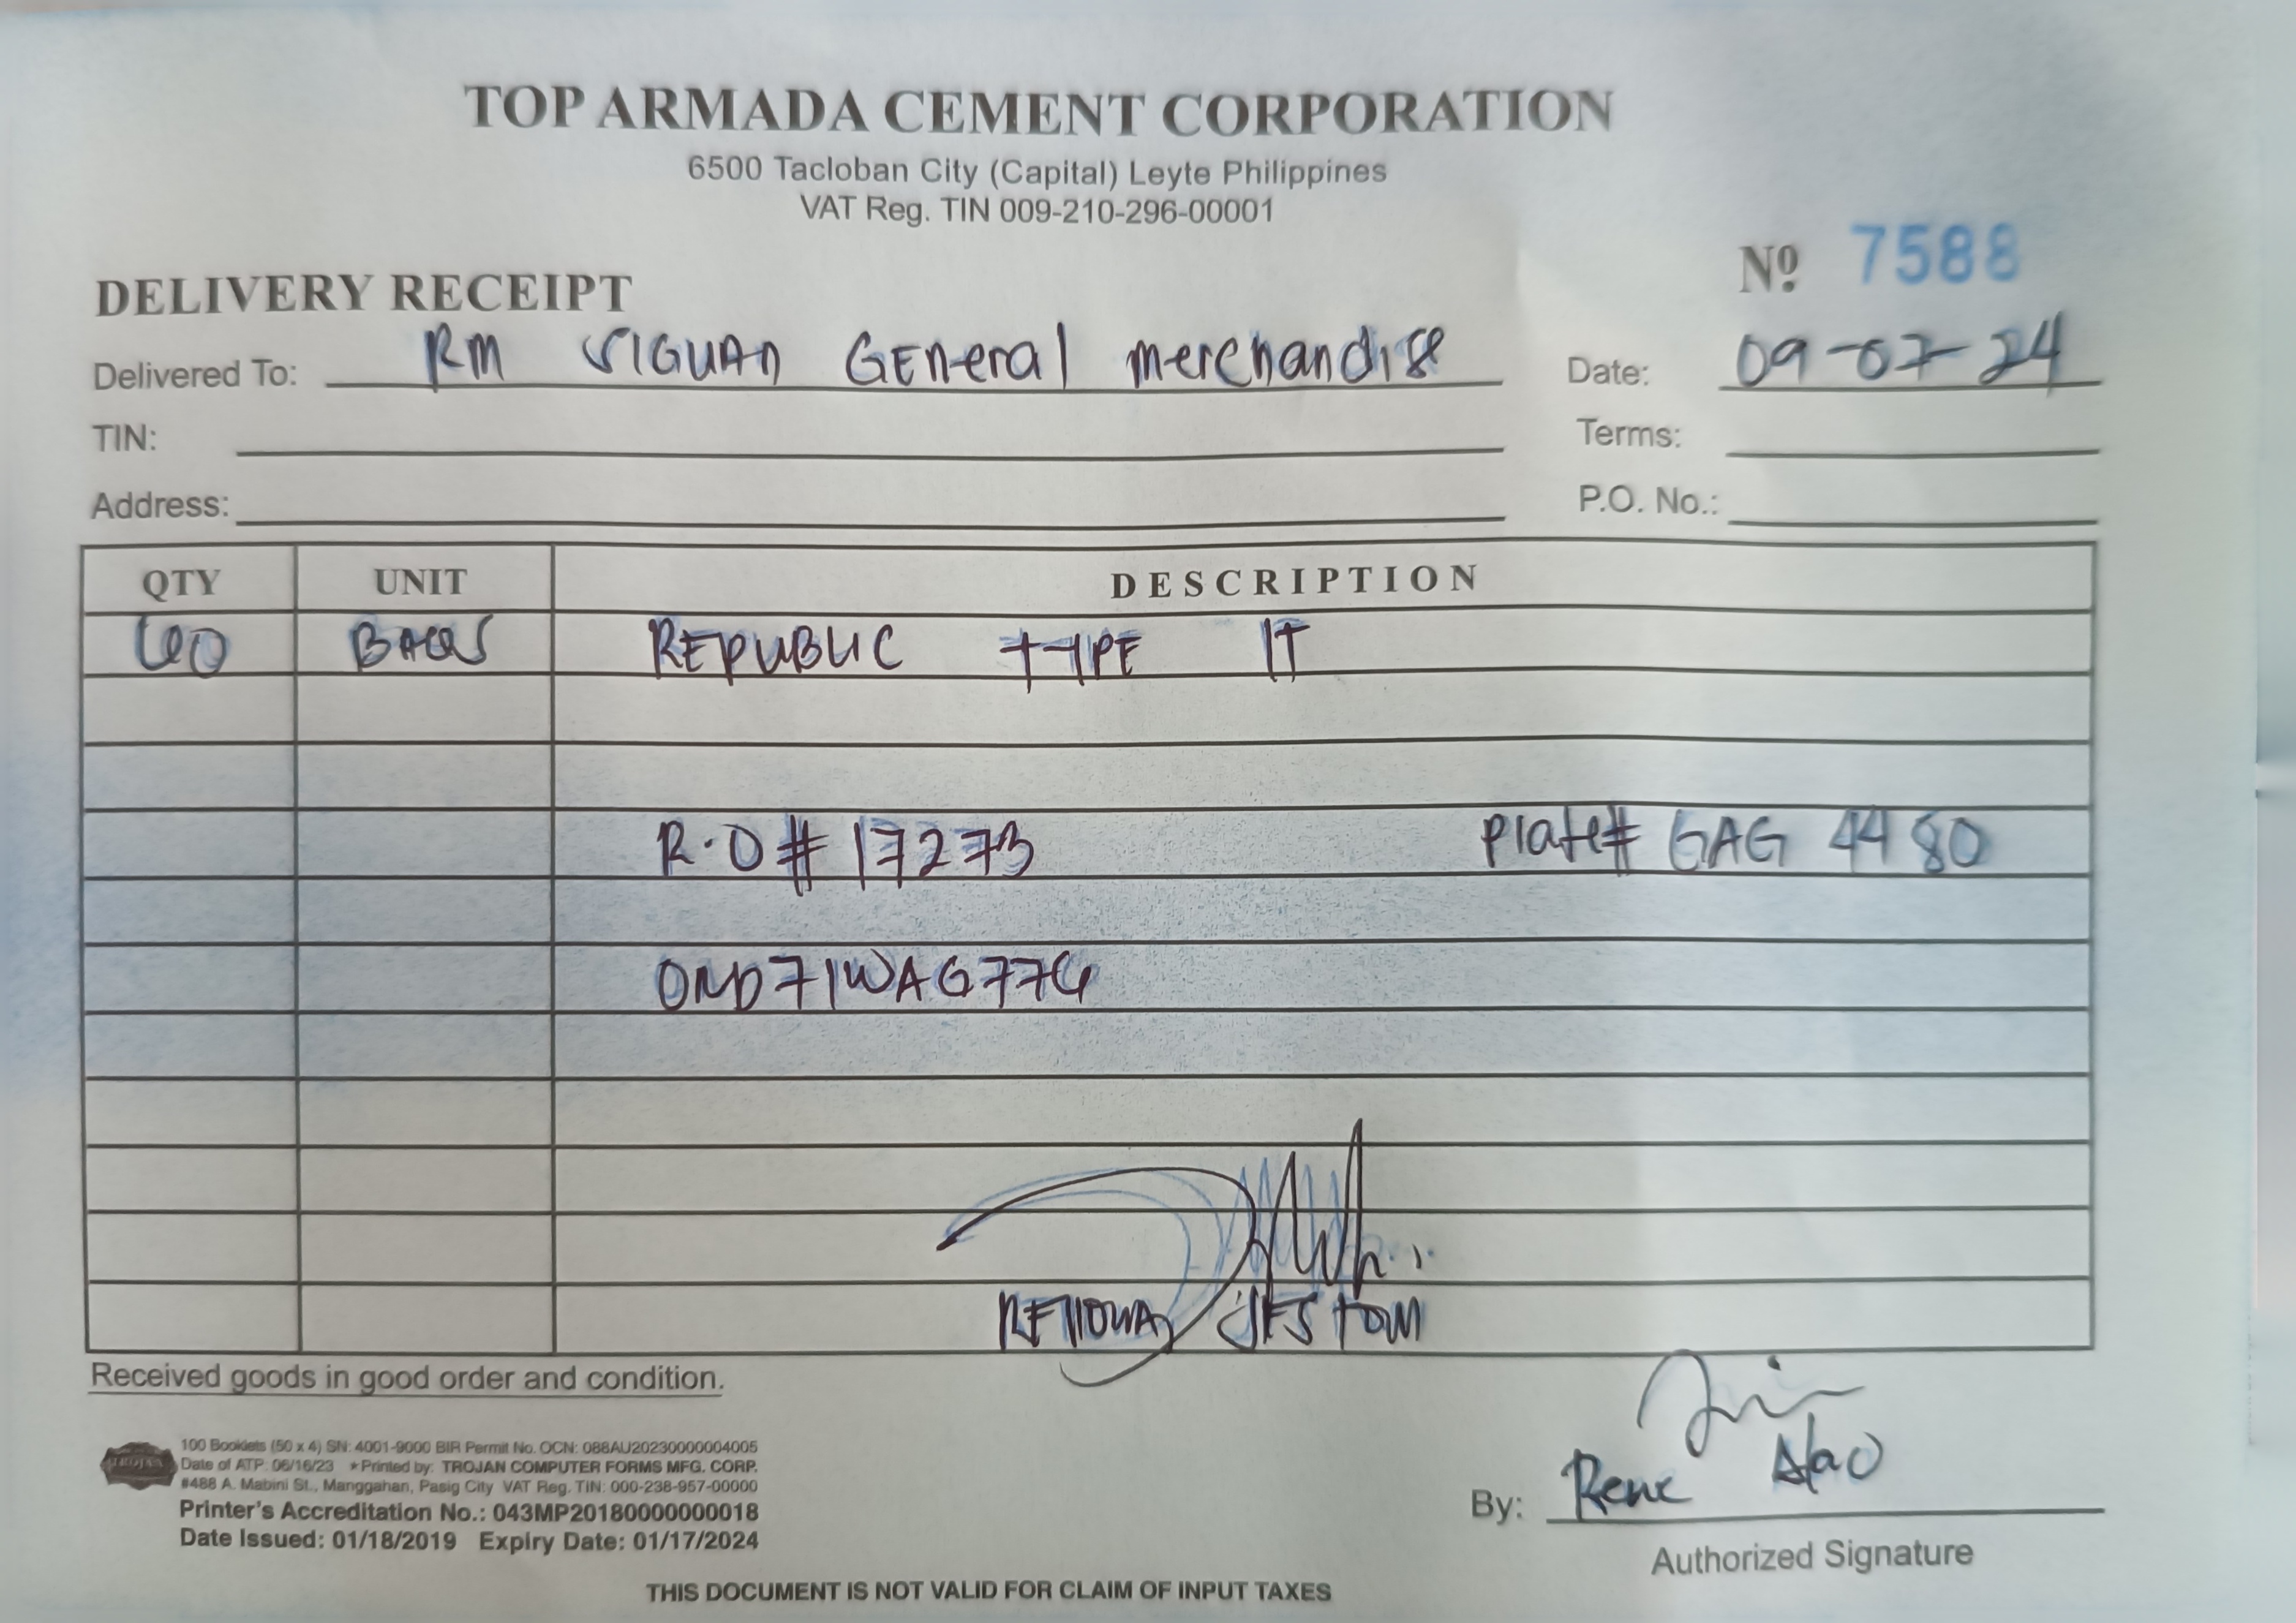 TOP ARMADA CEMENT CORPORATION
6500 Tacloban City (Capital) Leyte Philippines
VAT Reg. TIN 009-210-296-00001
Nº 7588
DELIVERY RECEIPT
Delivered To: RM VIGUAN GEneral merchandise
Date: 09-07-24
TIN:
Terms:
Address:
P.O. No.:
QTY UNIT DESCRIPTION
BAGS REPUBLIC TYPE IT
R.O # 17273 Plate# GAG 4480
Received goods in good order and condition.
TROJAN
100 Booklets (50 x 4) SN: 4001-9000 BIR Permit No. OCN: 088AU20230000004005
Date of ATP: 06/16/23 ★Printed by: TROJAN COMPUTER FORMS MFG. CORP.
#488 A. Mabini St., Manggahan, Pasig City VAT Reg. TIN: 000-238-957-00000
Printer's Accreditation No.: 043MP20180000000018
Date Issued: 01/18/2019 Expiry Date: 01/17/2024
By: Rene
Authorized Signature
THIS DOCUMENT IS NOT VALID FOR CLAIM OF INPUT TAXES